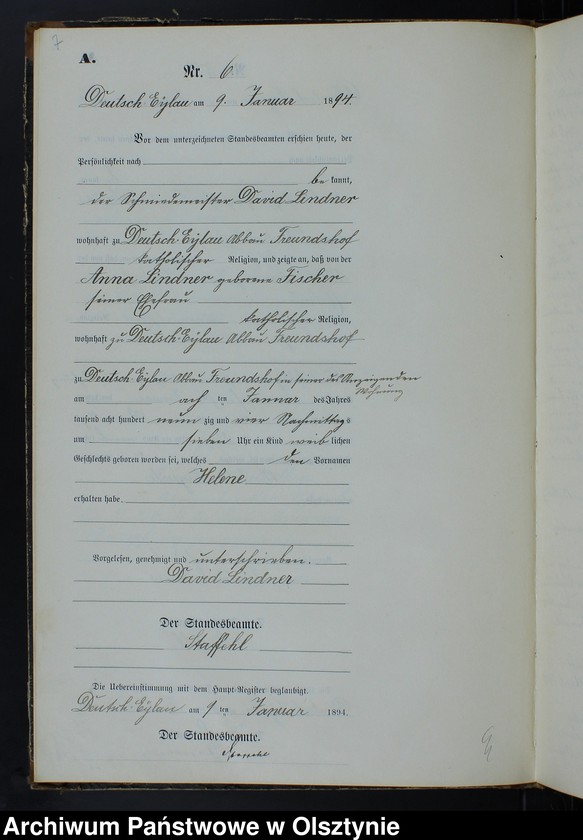 7
A.
Nr. 6
Deutsch-Eylau am 9. Januar 1894
Vor dem unterzeichneten Standesbeamten erschien heute, der
Persönlichkeit nach
be kannt,
der Schmiedemeister David Lindner
wohnhaft zu Deutsch-Eylau Abbau Freundshof
katholischer Religion, und zeigte an, daß von der
Anna Lindner geborene Fischer
seiner Ehefrau
katholischer Religion,
wohnhaft zu Deutsch-Eylau Abbau Freundshof
zu Deutsch-Eylau Abbau Freundshof in seiner des Anzeigenden
Wohnung
am ach ten Januar des Jahres
tausend acht hundert neun zig und vier Nachmittags
um sieben Uhr ein Kind weib lichen
Geschlechts geboren worden sei, welches den Vornamen
Helene
erhalten habe.
Vorgelesen, genehmigt und unterschrieben.
David Lindner
Der Standesbeamte.
Staffehl
Die Uebereinstimmung mit dem Haupt-Register beglaubigt.
Deutsch-Eylau am 9 ten Januar 1894.
Der Standesbeamte.
Staffehl
Archiwum Państwowe w Olsztynie